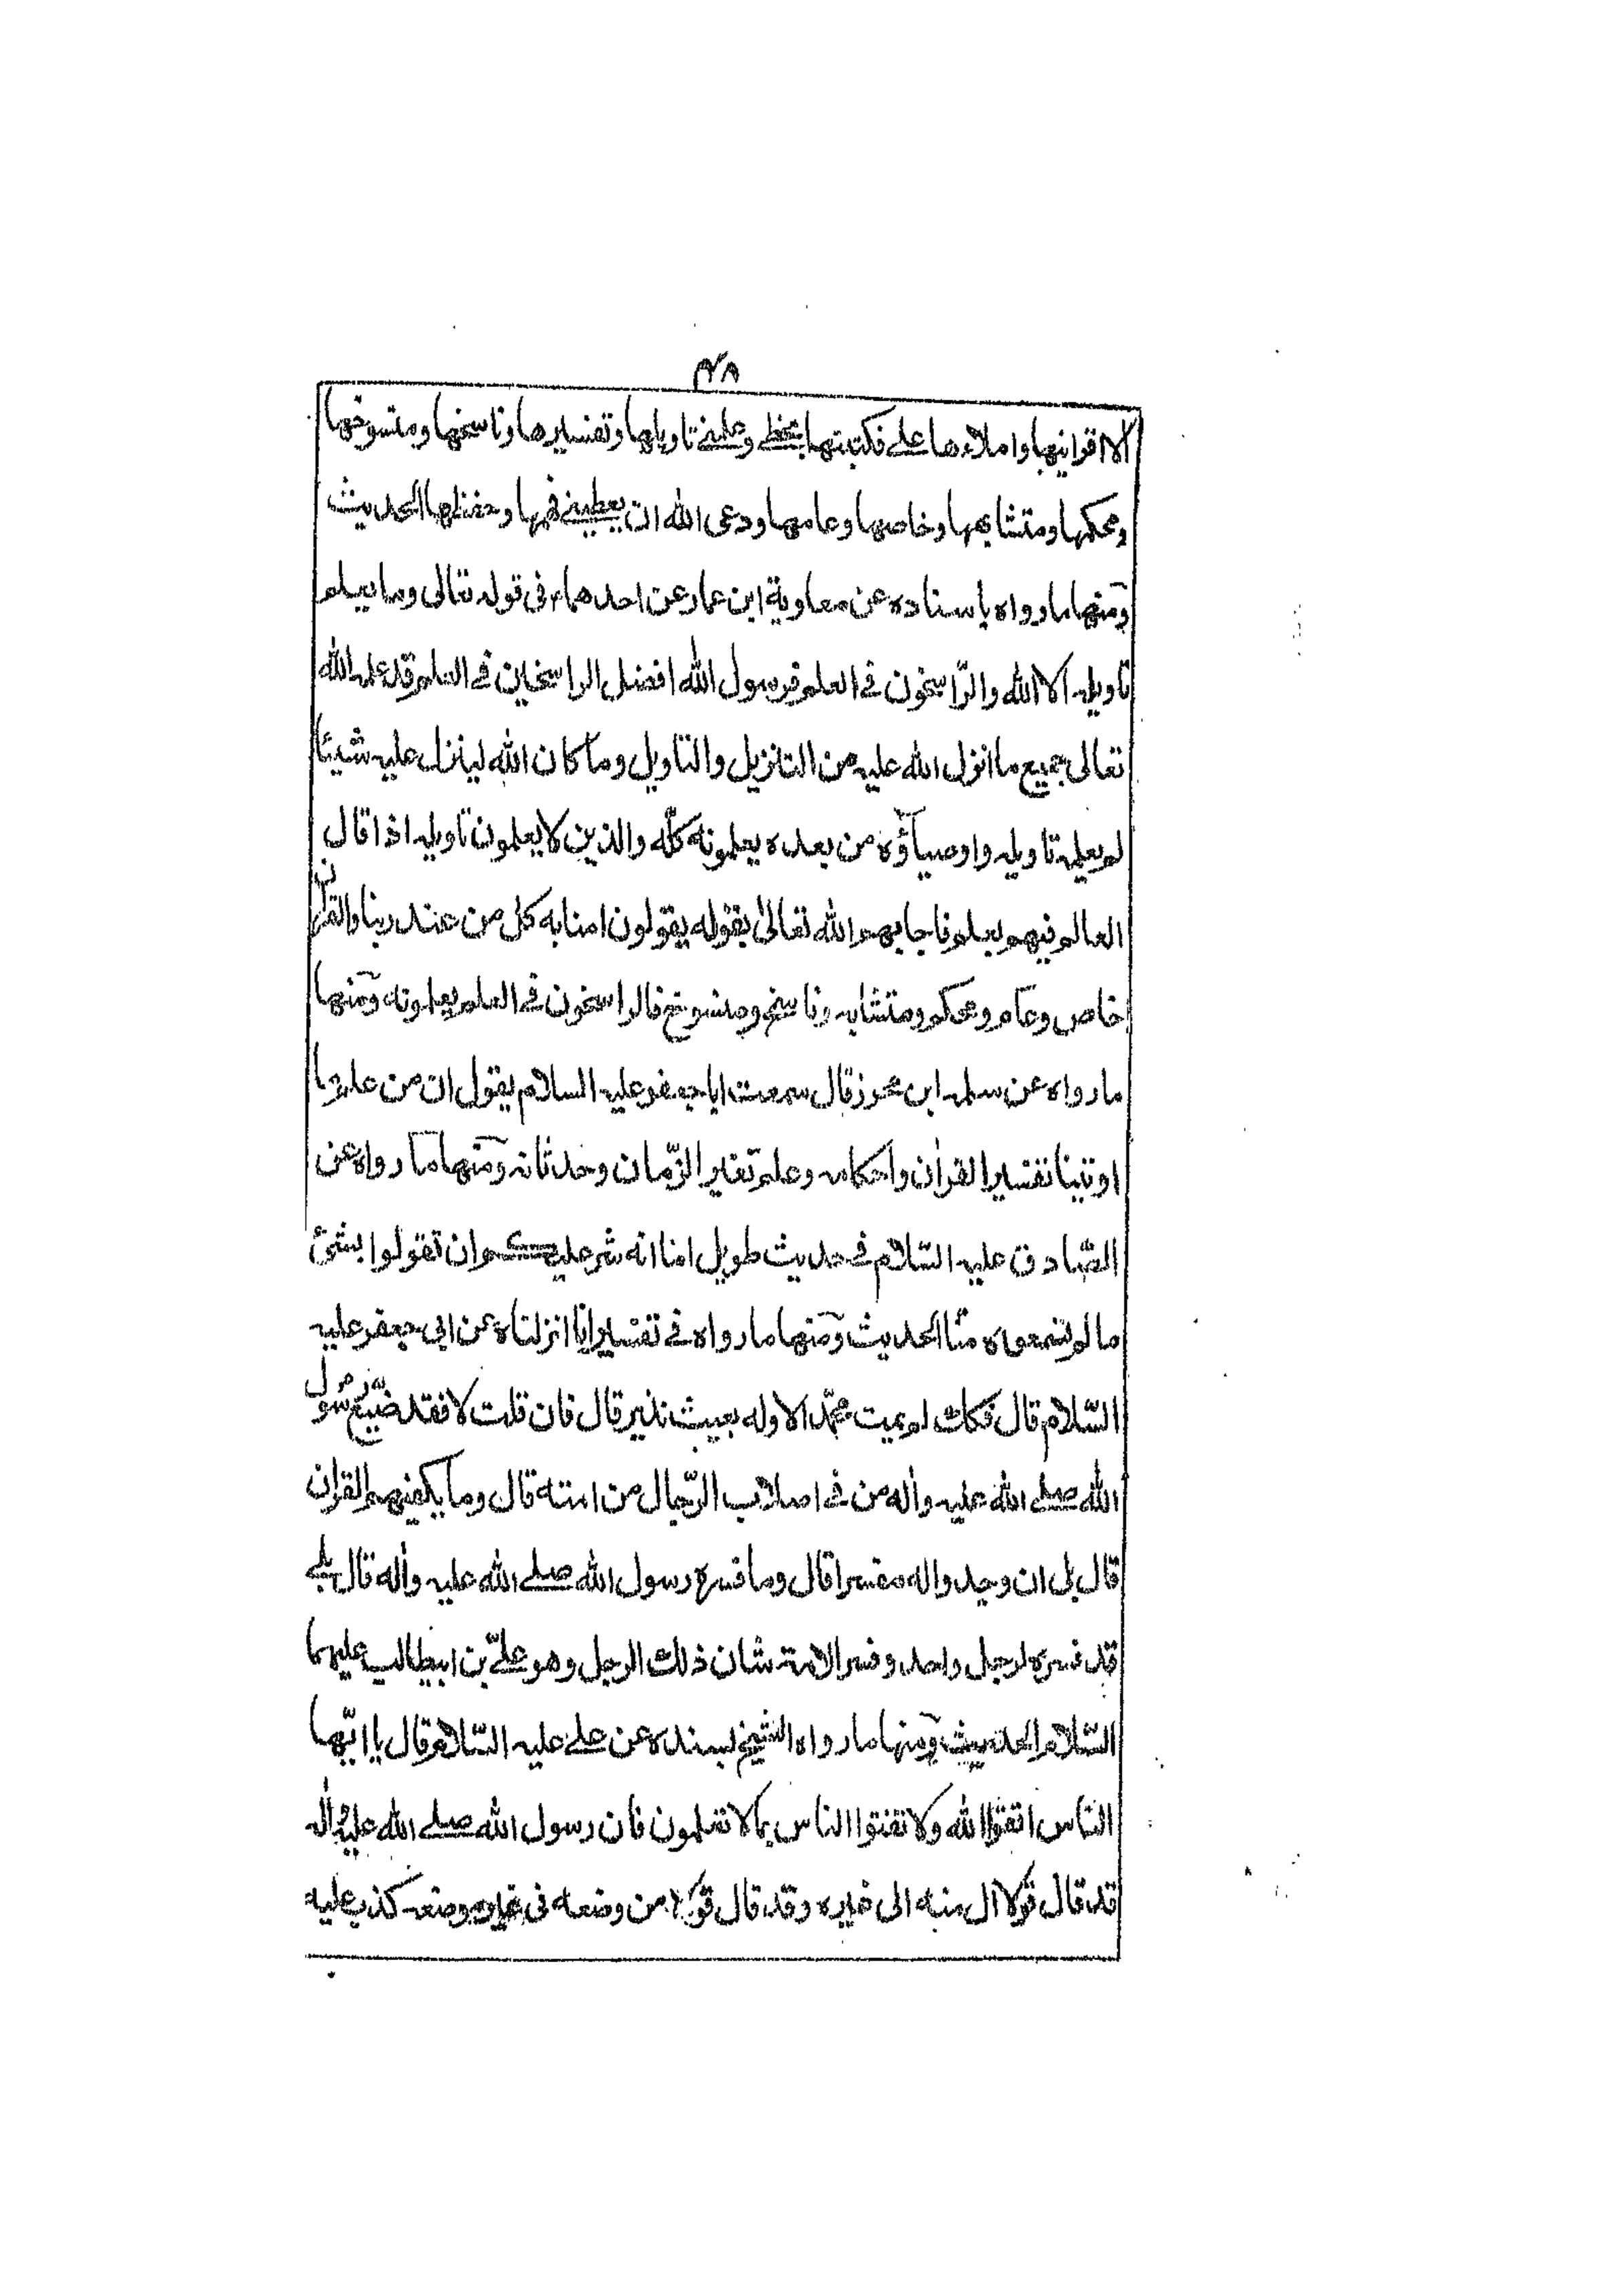 ٣٨
الا اقرانيها واملاءها علے فكتبتها بخطے وعلمنے تاويلها وتفسيرها وناسخها ومنسوخها
ومحكمها ومتشابهها وخاصها وعامها ودعى الله ان يعطينے فهمها وحفظها الحديث
ومنها ما رواه باسناده عن معاوية ابن عمار عن احدهماء فى قوله تعالى وما يعلم
تاويله الا الله والرّاسخون فے العلم فرسول الله افضل الراسخين فے العلم قد علمه الله
تعالى جميع ما انزل الله عليه من التنزيل والتاويل وما كان الله لينزل عليه شيئا
لم يعلمه تاويله واوصياؤه من بعده يعلمونه كلّه والذين لا يعلمون تاويله اذا قال
العالم فيهم بعلم فاجابهم الله تعالىٰ بقوله يقولون امنا به كل من عند ربنا والقران
خاص وعام ومحكم ومتشابه وناسخ ومنسوخ فالراسخون فے العلم يعلمونه ومنها
ما رواه عن سلمه ابن محرز قال سمعت ابا جعفر عليه السلام يقول ان من علم ما
اوتينا تفسير القران واحكامه وعلم تغير الزّمان وحدثانه ومنها ما رواه عن
الصّادق عليه السّلام فے حديث طويل اما انه شر عليكم ان تقولوا بشئ
ما لم تسمعوه منّا الحديث ومنها ما رواه فے تفسير انّا انزلناه عن ابى جعفر عليه
السّلام قال فكك لم يمت محمّد الا وله بعيث نذير قال فان قلت لا فقد ضيّع رسول
الله صلے الله عليه واٰله من فے اصلاب الرّجال من امته قال وما يكفيهم القران
قال بلى ان وجدوا له مفسرا قال وما فسره رسول الله صلے الله عليه واٰله قال بلے
قد فسره لرجل واحد وفسر الامة شان ذلك الرجل وهو علےّ بن ابيطالب عليهما
السّلام الحديث ومنها ما رواه الشيخ بسنده عن علے عليه السّلام قال يا ايّها
الناس اتقوا الله ولا تفتوا الناس بما لا تعلمون فان رسول الله صلے الله عليه واٰله
قد قال قولا ال منه الى غيره وقد قال قولا من وضعه فى غير موضعه كذب عليه